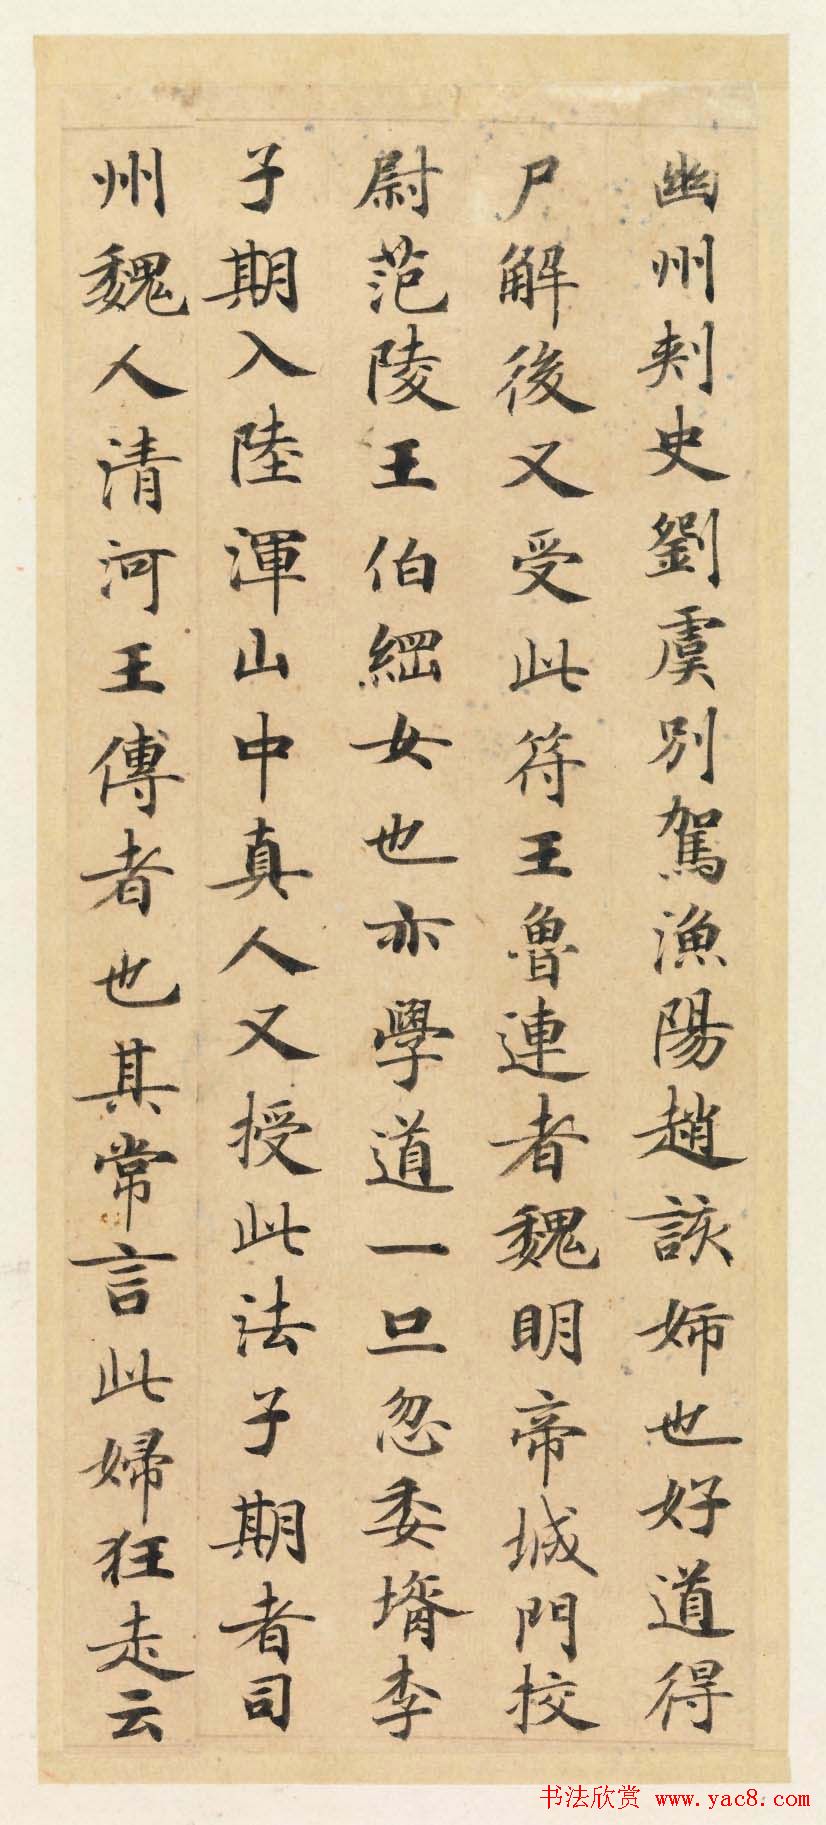 幽州刾史劉虞別駕漁陽趙該姉也好道得
尸解後又受此符王魯連者魏明帝城門挍
尉范陵王伯綱女也亦學道一旦忽委壻李
子期入陸渾山中真人又授此法子期者司
州魏人清河王傅者也其常言此婦狂走云
书法欣赏 www.yac8.com